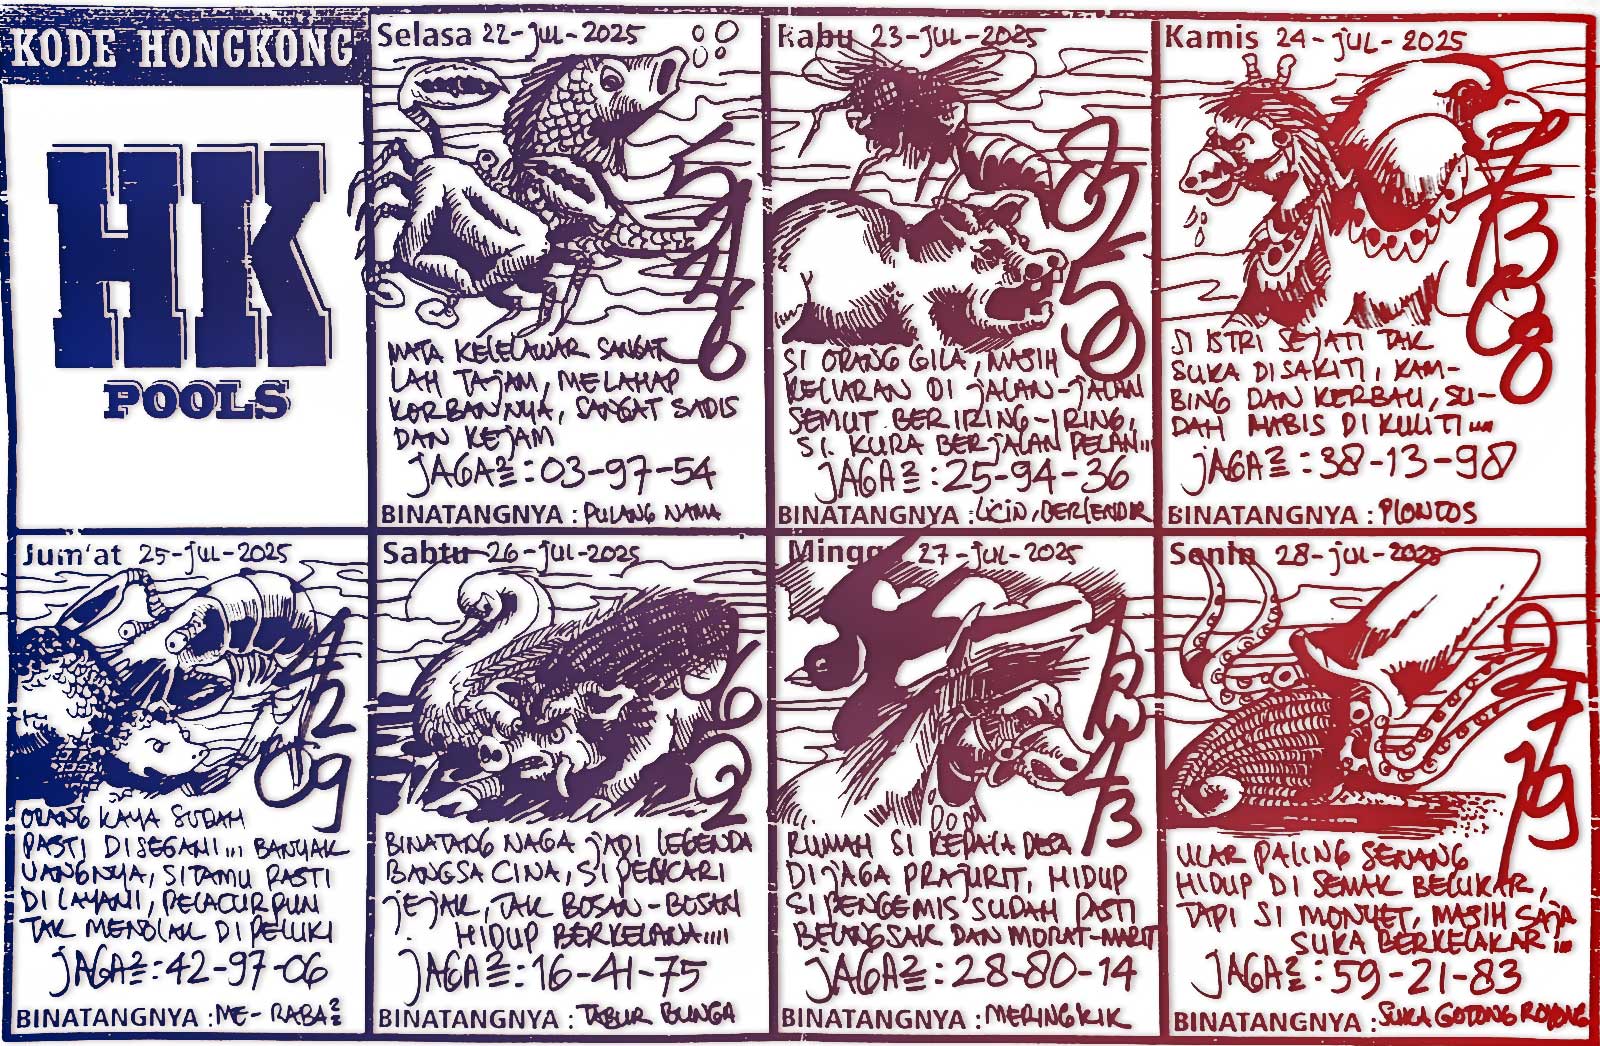 KODE HONGKONG
HK
POOLS
Selasa 22-JUL-2025
MATA KELELAWAR SANGAT
LAH TAJAM, MELAHAP
KORBANNYA, SANGAT SADIS
DAN KEJAM
JAGA2 : 03-97-54
BINATANGNYA : PULANG NAMA
Rabu 23-JUL-2025
SI ORANG GILA, MASIH
KELIARAN DI JALAN-JALAN
SEMUT BERIRING-IRING,
SI KURA BERJALAN PELAN...
JAGA2 : 25-94-36
BINATANGNYA : LICIN, BERLENDIR
Kamis 24-JUL-2025
SI ISTRI SEJATI TAK
SUKA DISAKITI, KAM-
BING DAN KERBAU, SU-
DAH HABIS DI KULITI....
JAGA2 : 38-13-98
BINATANGNYA : PLONTOS
Jum'at 25-JUL-2025
ORANG KAYA SUDAH
PASTI DISEGANI... BANYAK
UANGNYA, SI TAMU PASTI
DI LAYANI, PELACUR PUN
TAK MENOLAK DI PELUKI
JAGA2 : 42-97-06
BINATANGNYA : ME-RABA2
Sabtu 26-JUL-2025
BINATANG NAGA JADI LEGENDA
BANGSA CINA, SI PENCARI
JEJAK, TAK BOSAN-BOSAN
HIDUP BERKELANA....
JAGA2 : 16-41-75
BINATANGNYA : TABUR BUNGA
Minggu 27-JUL-2025
RUMAH SI KEPALA DESA
DIJAGA PRAJURIT, HIDUP
SI PENGEMIS SUDAH PASTI
BELANGSAK DAN MORAT-MARIT
JAGA2 : 28-80-14
BINATANGNYA : MERINGKIK
Senin 28-JUL-2025
ULAR PALING SENANG
HIDUP DI SEMAK BELUKAR,
TAPI SI MONYET, MASIH SAJA
SUKA BERKELAKAR...
JAGA2 : 59-21-83
BINATANGNYA : SUKA GOTONG ROYONG